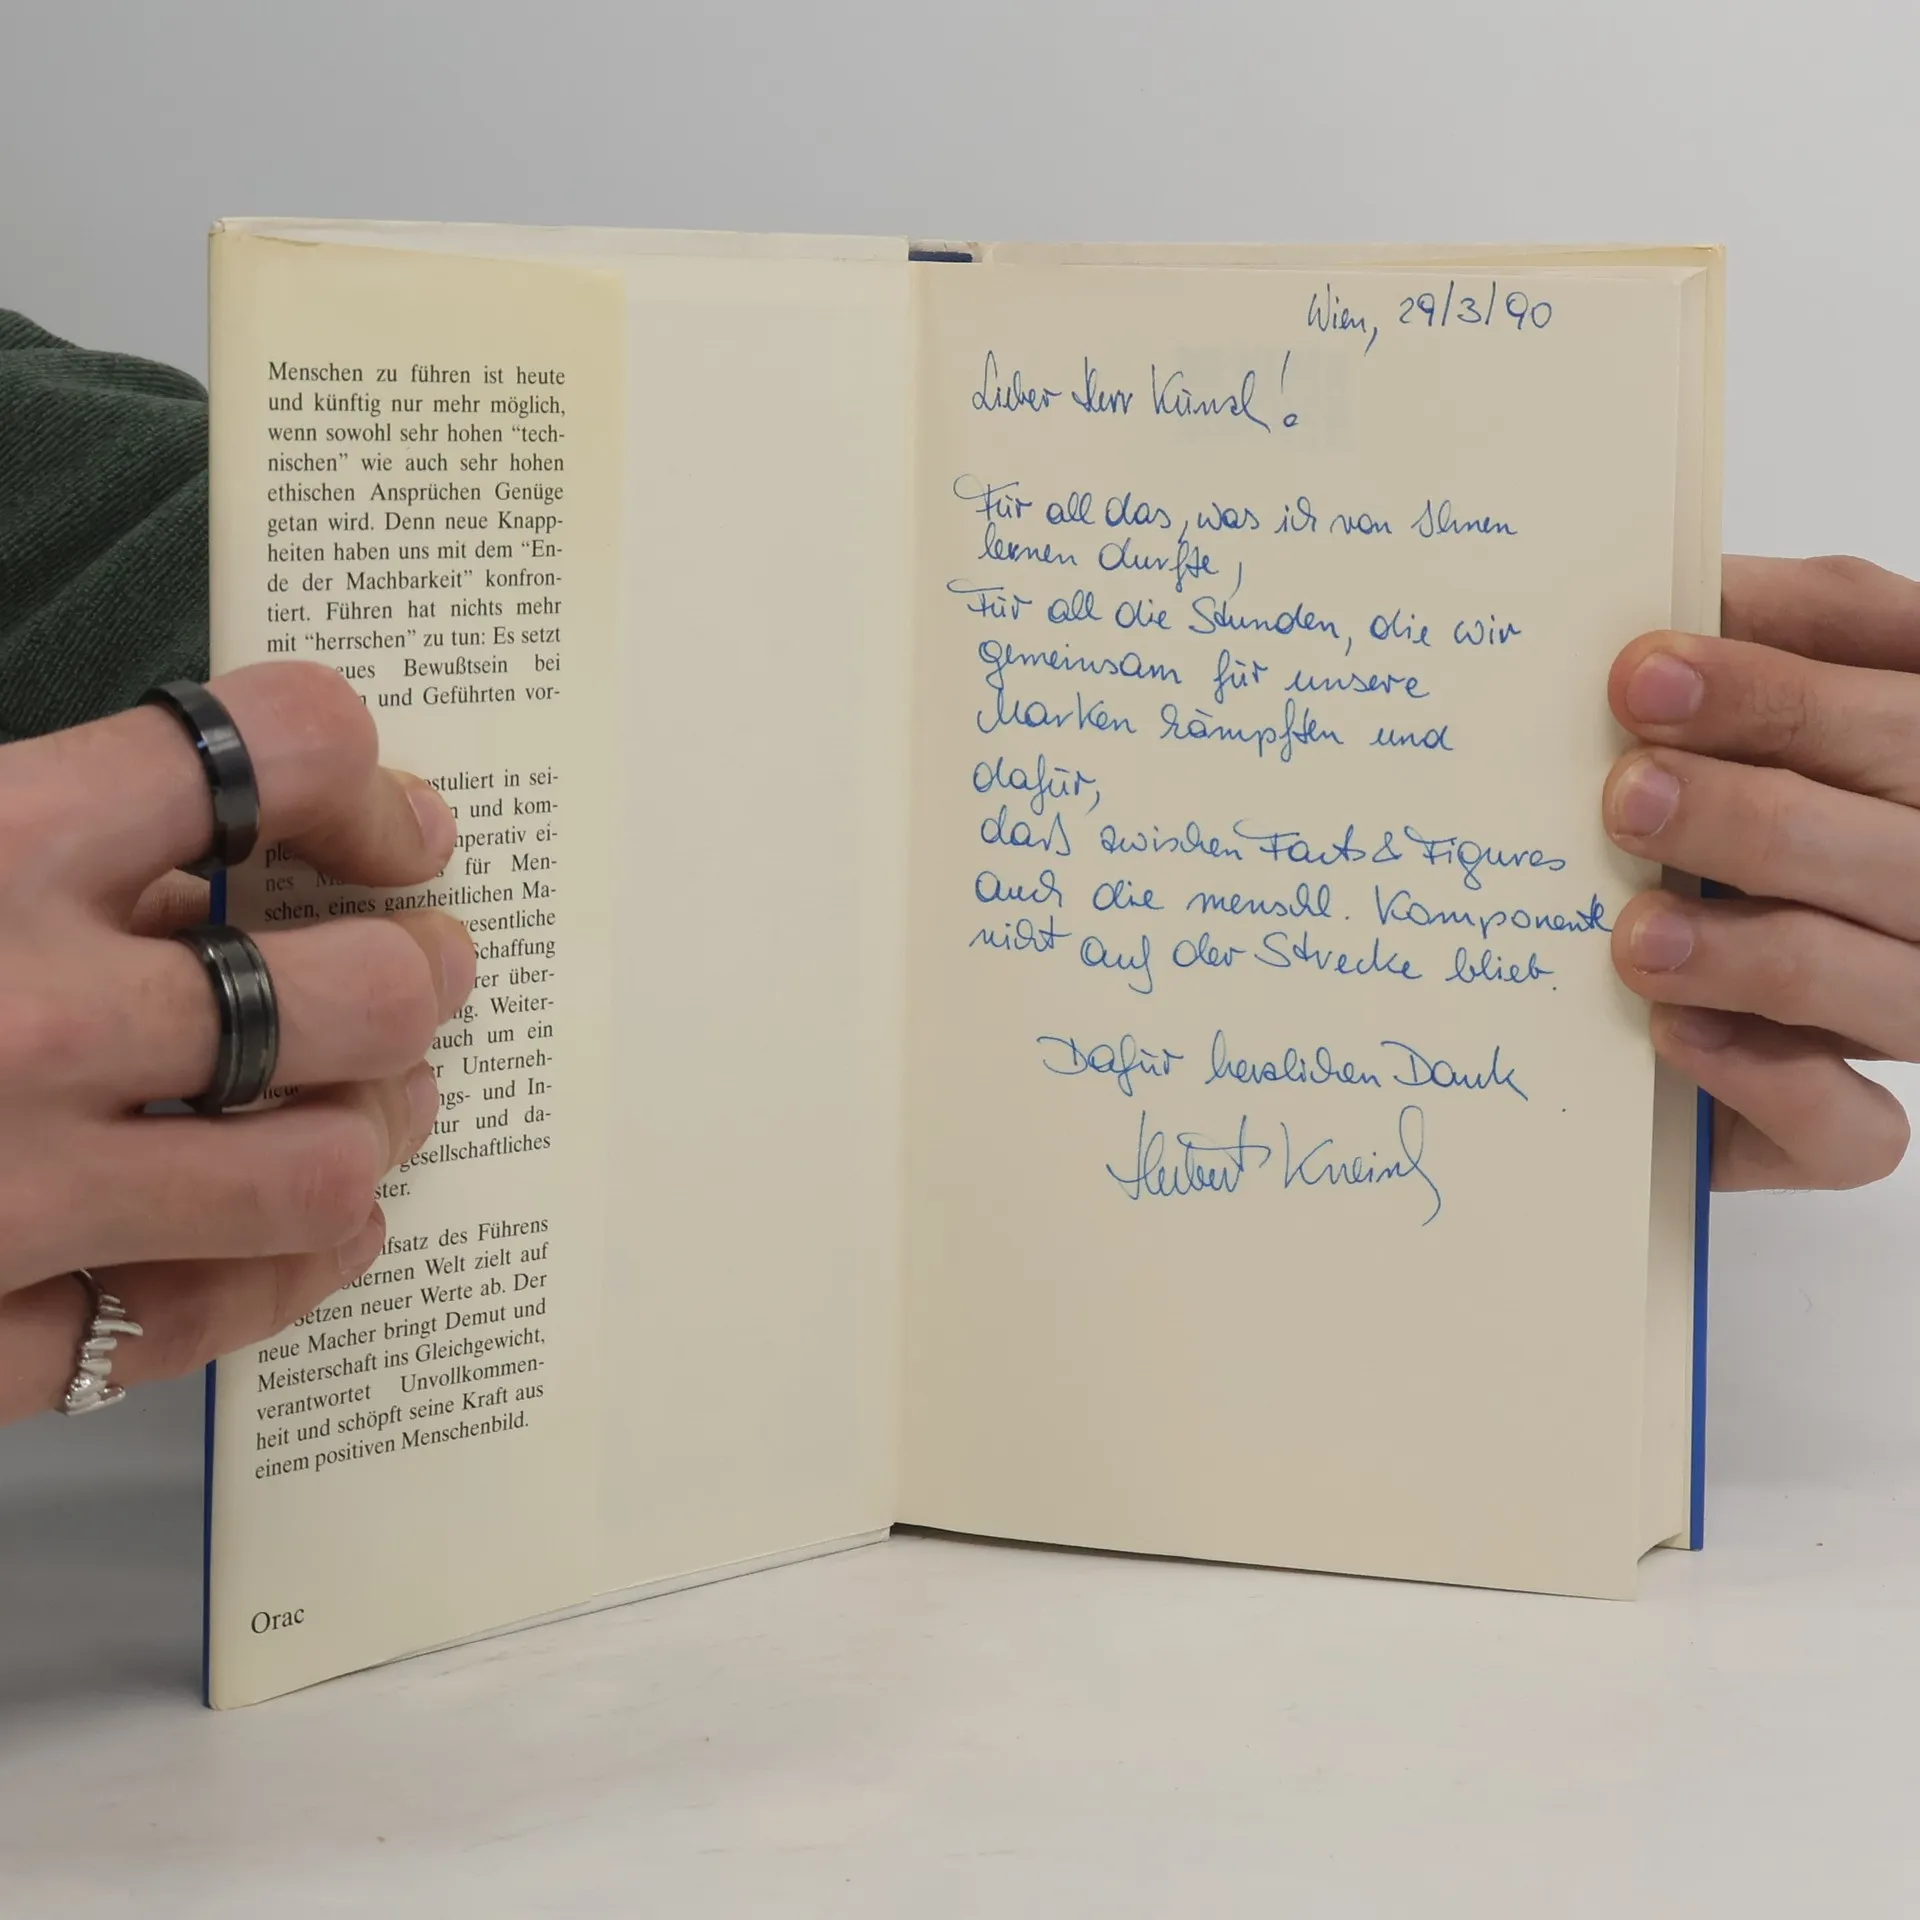 Menschen zu führen ist heute
und künftig nur mehr möglich,
wenn sowohl sehr hohen “tech-
nischen” wie auch sehr hohen
ethischen Ansprüchen Genüge
getan wird. Denn neue Knapp-
heiten haben uns mit dem “En-
de der Machbarkeit” konfron-
tiert. Führen hat nichts mehr
mit “herrschen” zu tun: Es setzt
Bewußtsein bei
und Geführten vor-
in sei-
und kom-
ei-
für Men-
schen, eines ganzheitlichen Ma-
über-
Weiter-
auch um ein
Unterneh-
und In-
und da-
gesellschaftliches
des Führens
Welt zielt auf
neuer Werte ab. Der
neue Macher bringt Demut und
Meisterschaft ins Gleichgewicht,
verantwortet Unvollkommen-
heit und schöpft seine Kraft aus
einem positiven Menschenbild.
Orac
Wien, 29/3/90
Lieber Herr Künzl!
Für all das, was ich von Ihnen
lernen durfte,
Für all die Stunden, die wir
gemeinsam für unsere
Marken kämpften und
dafür,
daß zwischen Facts & Figures
auch die menschl. Komponente
nicht auf der Strecke blieb.
Dafür herzlichen Dank